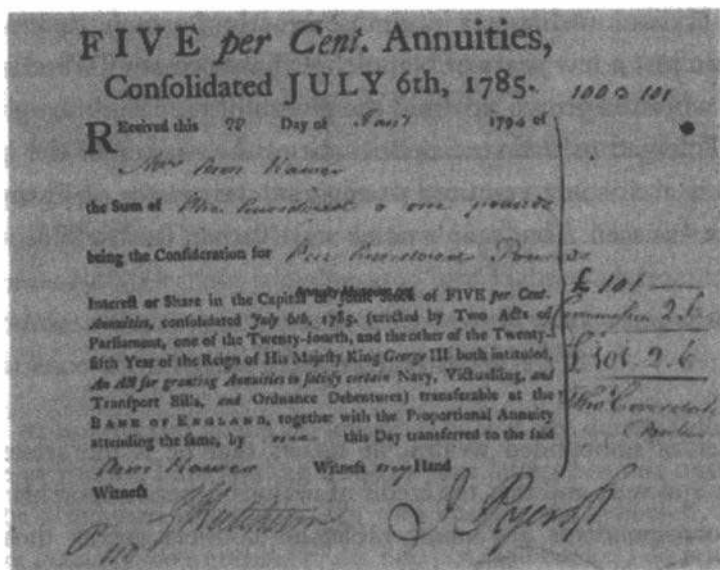 FIVE per Cent. Annuities,
Conſolidated JULY 6th, 1785.
100 @ 101
REceived this Day of Jany 179 of
Mrs Ann
the Sum of One hundred & one pounds
being the Conſideration for One hundred Pounds
£ 101 —
Intereſt or Share in the Capital or Joint Stock of FIVE per Cent.
Annuities, conſolidated July 6th, 1785. (erected by Two Acts of
Commiſsion 2.6
Parliament, one of the Twenty-fourth, and the other of the Twenty-
£ 101.2.6
fifth Year of the Reign of His Majeſty King George III. both intituled,
An Act for granting Annuities to ſatisfy certain Navy, Victualling, and
Tranſport Bills, and Ordnance Debentures) transferable at the
BANK OF ENGLAND, together with the Proportional Annuity
attending the ſame, by me this Day transferred to the ſaid
Ann Witneſs my Hand
Witneſs